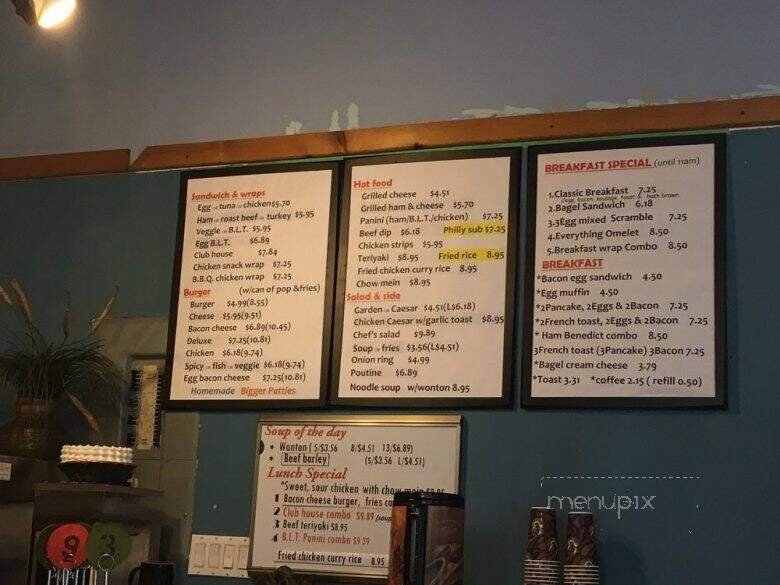 Sandwich & wraps
Egg or tuna or chicken$5.70
Ham or roast beef or turkey $5.95
Veggie or B.L.T. $5.95
Egg B.L.T. $6.89
Club house $7.84
Chicken snack wrap $7.25
B.B.Q. chicken wrap $7.25
Burger (w/can of pop &fries)
Burger $4.99(8.55)
Cheese $5.95(9.51)
Bacon cheese $6.89(10.45)
Deluxe $7.25(10.81)
Chicken $6.18(9.74)
Spicy or fish or veggie $6.18(9.74)
Egg bacon cheese $7.25(10.81)
Homemade Bigger Patties
Hot food
Grilled cheese $4.51
Grilled ham & cheese $5.70
Panini (ham/B.L.T./chicken) $7.25
Beef dip $6.18 Philly sub $7.25
Chicken strips $5.95
Teriyaki $8.95 Fried rice 8.95
Fried chicken curry rice 8.95
Chow mein $8.95
Salad & side
Garden or Caesar $4.51(L$6.18)
Chicken Caesar w/garlic toast $8.95
Chef's salad $9.89
Soup or fries $3.56(L$4.51)
Onion ring $4.99
Poutine $6.89
Noodle soup w/wonton 8.95
BREAKFAST SPECIAL (until 11am)
1.Classic Breakfast 7.25
2egg, bacon, sausage, toast & hash brown
2.Bagel Sandwich 6.18
3.3Egg mixed Scramble 7.25
4.Everything Omelet 8.50
5.Breakfast wrap Combo 8.50
BREAKFAST
*Bacon egg sandwich 4.50
*Egg muffin 4.50
*2Pancake, 2Eggs & 2Bacon 7.25
*2French toast, 2Eggs & 2Bacon 7.25
* Ham Benedict combo 8.50
3French toast (3Pancake) 3Bacon 7.25
*Bagel cream cheese 3.79
*Toast 3.31 *coffee 2.15 ( refill 0.50)
Soup of the day
Wonton ( 5/$3.56 8/$4.51 13/$6.89)
Beef barley (S/$3.56 L/$4.51)
Lunch Special
*Sweet, sour chicken with chow mein
1 Bacon cheese burger, fries
2 Club house combo $9.89 (soup
3 Beef teriyaki $8.95
4 B.L.T. Panini combo $9.39
Fried chicken curry rice 8.95
menupix
93